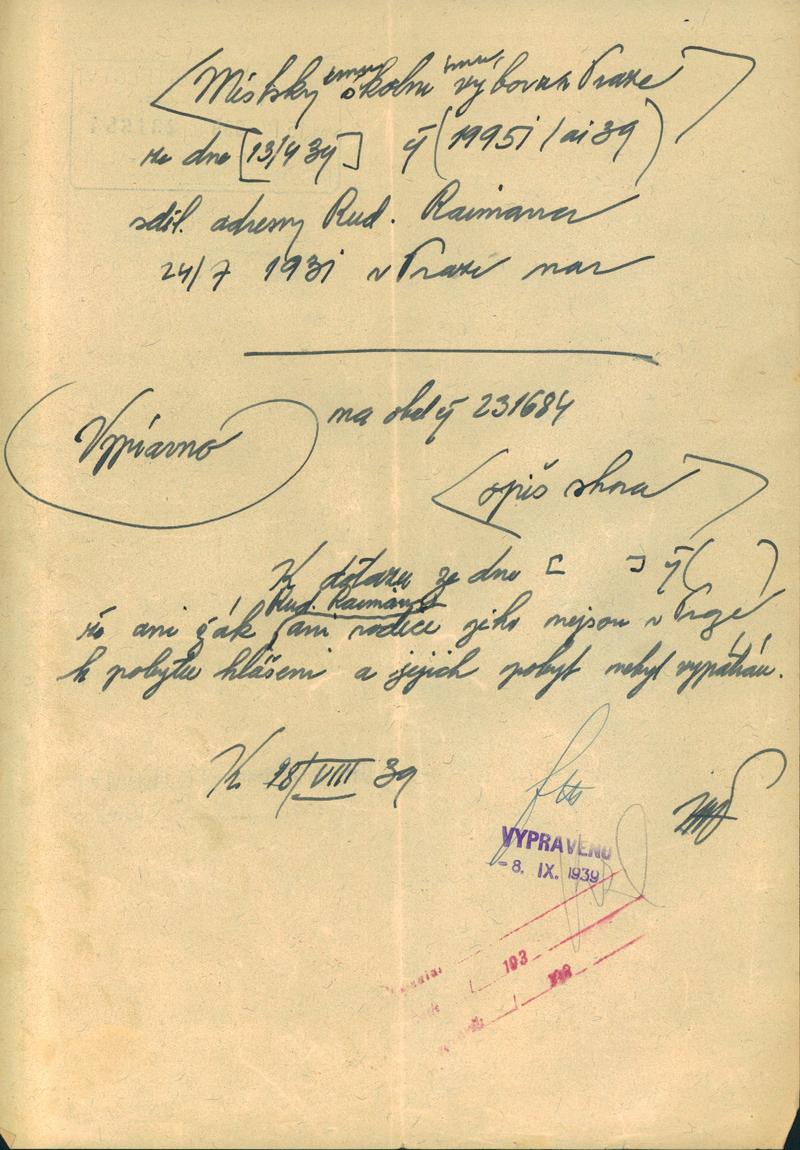 Místský školní výbor v Praze
ze dne [13/4 39] čj (19951/ai 39)
sděl. adresy Rud. Raimana
24/7 1931 v Praze nar
na obd čj 231684
opiš shora
K dotazu ze dne [ ] čj ( )
Rud. Raimana
že ani žák ani rodiče jeho nejsou v Praze
k pobytu hlášeni a jejich pobyt nebyl vypátrán.
K 28/VIII 39
VYPRAVENO
-8. IX. 1939
193